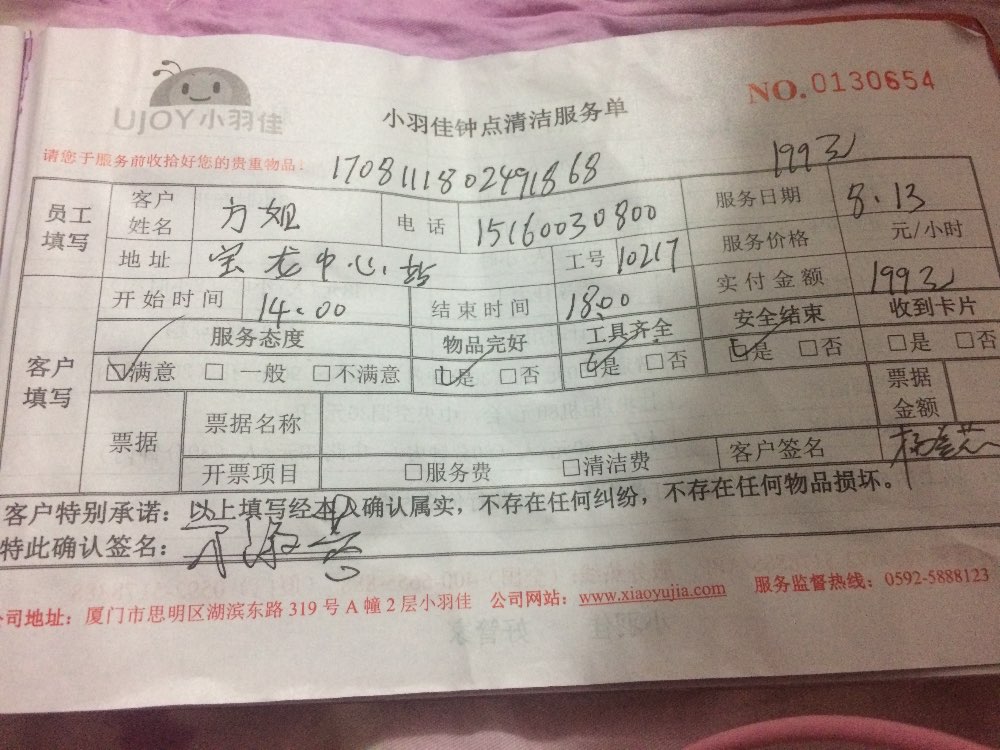 UJOY小羽佳
小羽佳钟点清洁服务单
NO.0130654
请您于服务前收拾好您的贵重物品:
1708111802491868
199元
员工填写
客户姓名 方姐 电话 15160030800 服务日期 8.13
地址 宝龙中心站 工号 10217 服务价格 元/小时
客户填写
开始时间 14.00 结束时间 18.00 实付金额 199元
服务态度 物品完好 工具齐全 安全结束 收到卡片
☑满意 □一般 □不满意 ☑是 □否 ☑是 □否 ☑是 □否 □是 □否
票据 票据名称 票据金额
开票项目 □服务费 □清洁费 客户签名
客户特别承诺:以上填写经本人确认属实,不存在任何纠纷,不存在任何物品损坏。
特此确认签名:
公司地址:厦门市思明区湖滨东路 319 号 A 幢 2 层小羽佳 公司网站:www.xiaoyujia.com 服务监督热线:0592-5888123